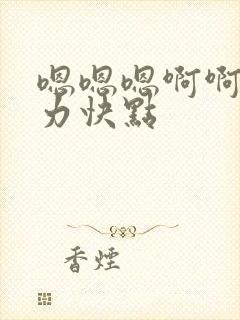 嗯嗯嗯啊啊
力快點
香煙